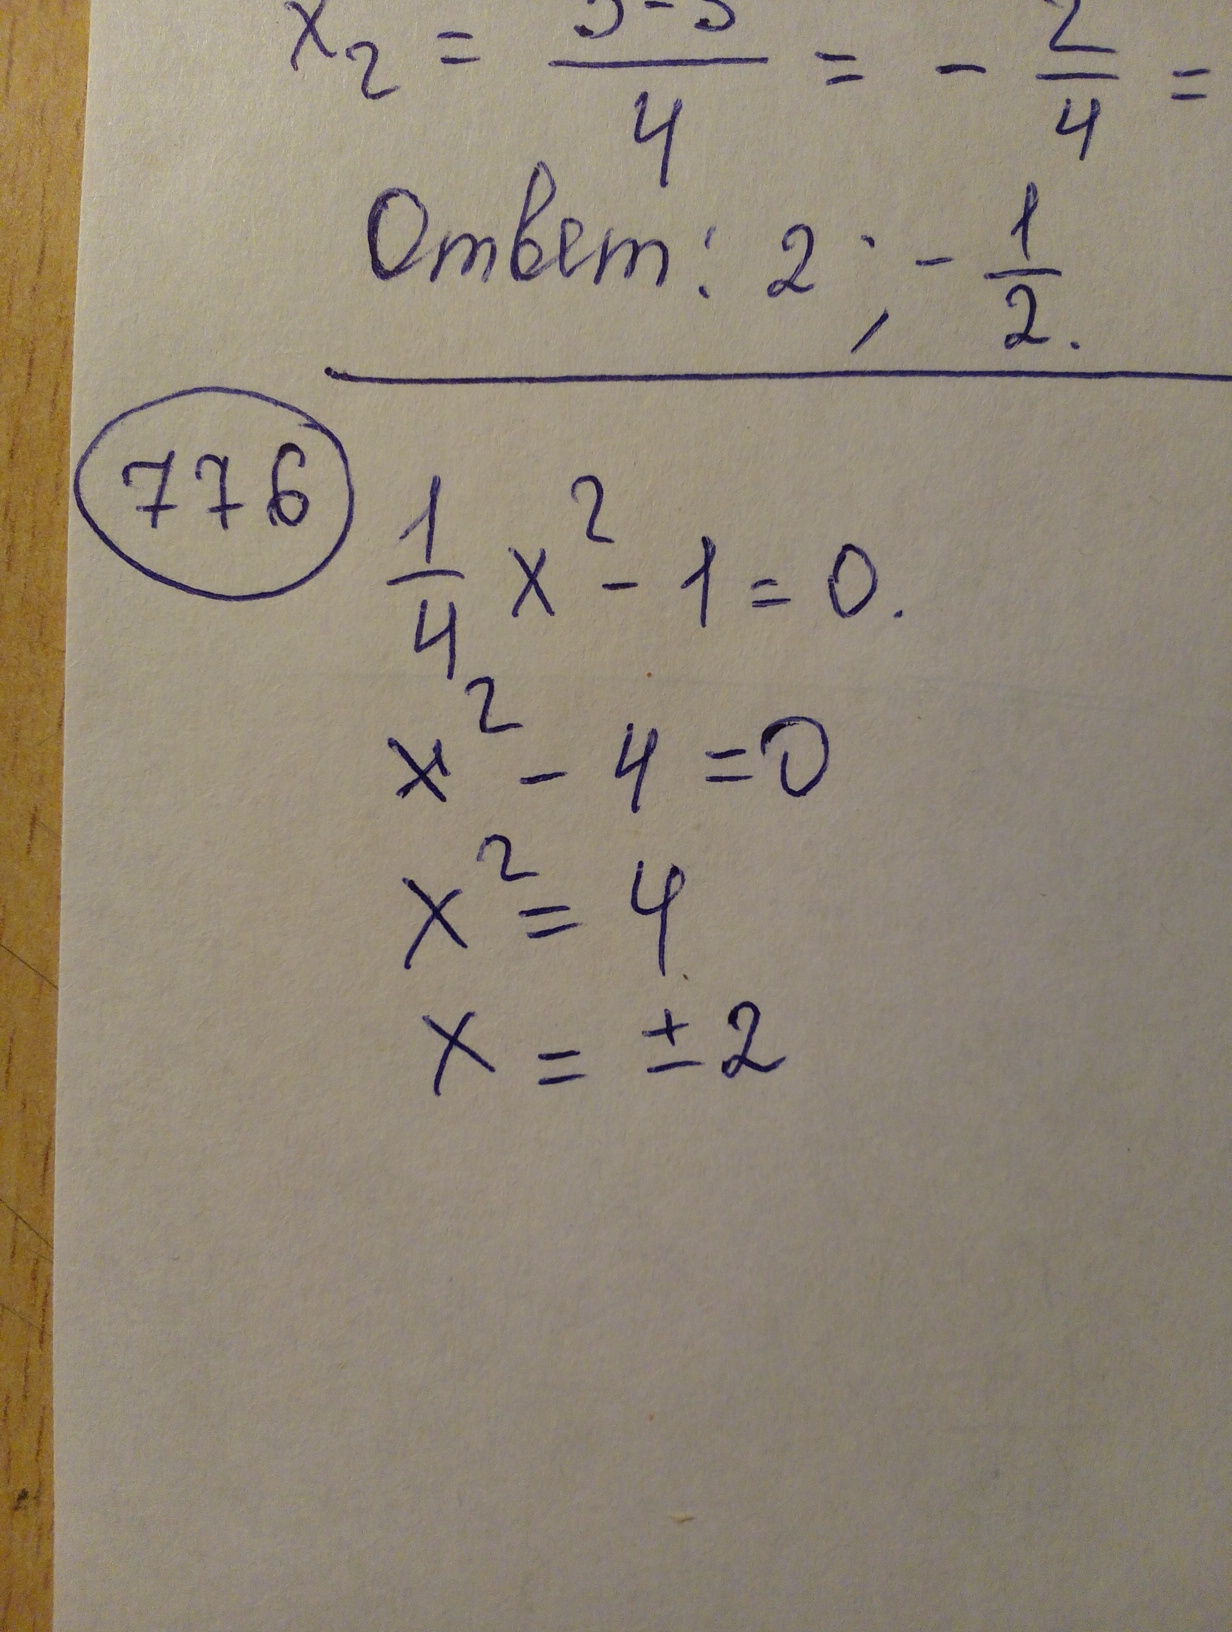 x₂ = 3-5/4 = - 2/4 =
Ответ: 2 ; - 1/2.
776
1/4 x² - 1 = 0.
x² - 4 = 0
x² = 4
x = ± 2